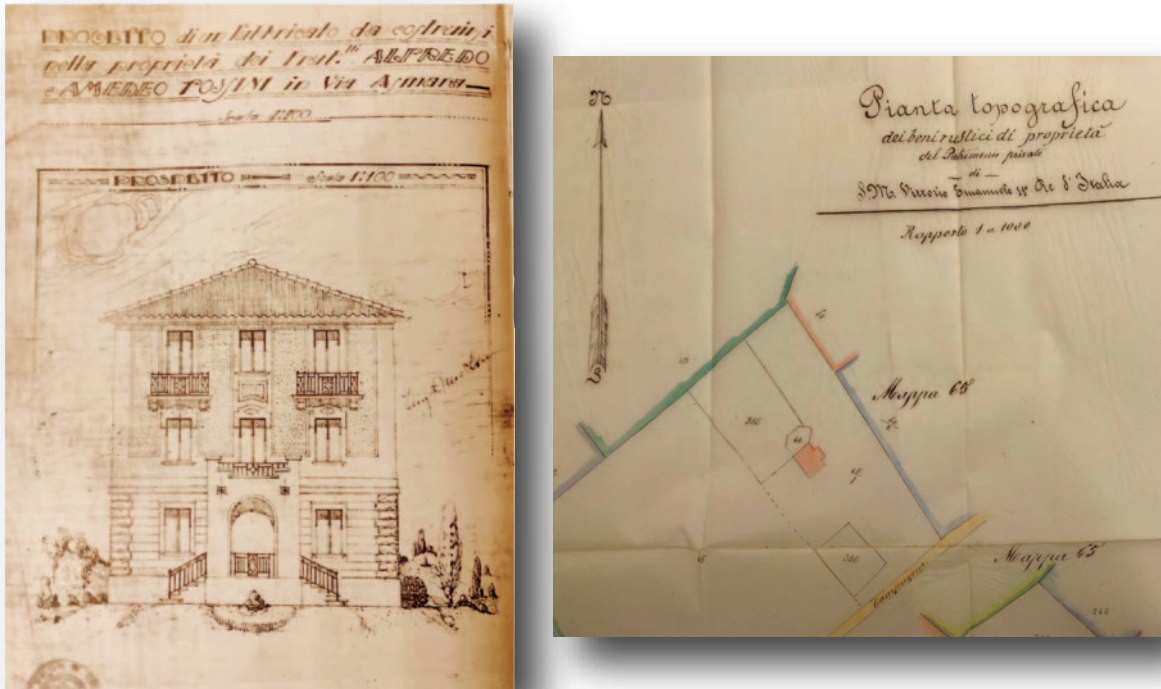 PROGETTO di un Fabbricato da costruirsi
nella proprietà dei Frat.lli ALFREDO
e AMEDEO TOSINI in Via Asmara
Scala 1:100
PROSPETTO Scala 1:100
N
S
Pianta topografica
dei beni rustici di proprietà
del Patrimonio privato
di
S. M. Vittorio Emanuele II Re d'Italia
Rapporto 1 a 1000
Mappa 65
Mappa 65